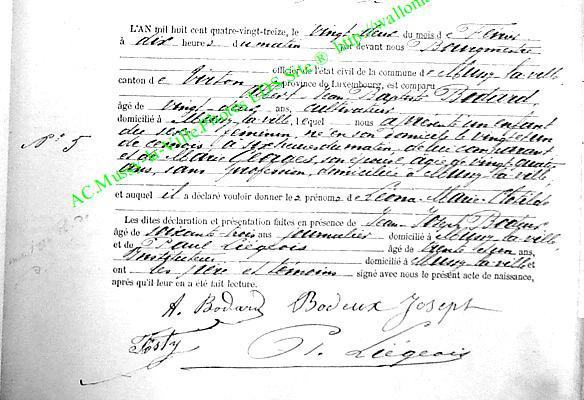 L'AN mil huit cent quatre-vingt-treize, le vingt deux du mois de Février
à dix heures du matin par devant nous Bourgmestre
officier de l'état civil de la commune de Mussy-la-ville
canton de Virton province de Luxembourg, est comparu
Albert Jean Baptiste Bodard
âgé de vingt ans, cultivateur
domicilié à Mussy-la-ville, lequel nous a présenté un enfant
du sexe féminin, né en son domicile le vingt et un
de ce mois à six heures du matin, de lui comparant
et de Marie Clages son épouse, âgée de vingt quatre
ans, sans profession, domiciliée à Mussy-la-ville
et auquel il a déclaré vouloir donner les prénoms de Léona Marie
Les dites déclaration et présentation faites en présence de Jean Joseph Bodeux
âgé de soixante trois ans journalier domicilié à Mussy-la-ville
et de Paul Liégeois âgé de trente ans,
Instituteur domicilié à Mussy-la-ville et
ont les père et témoins signé avec nous le présent acte de naissance,
après qu'il leur en a été fait lecture.
N° 5
A. Bodard Bodeux Joseph
Fosty P. Liégeois
AC.Mussy-la-Ville.Photos EDS Site ® http://wallonia